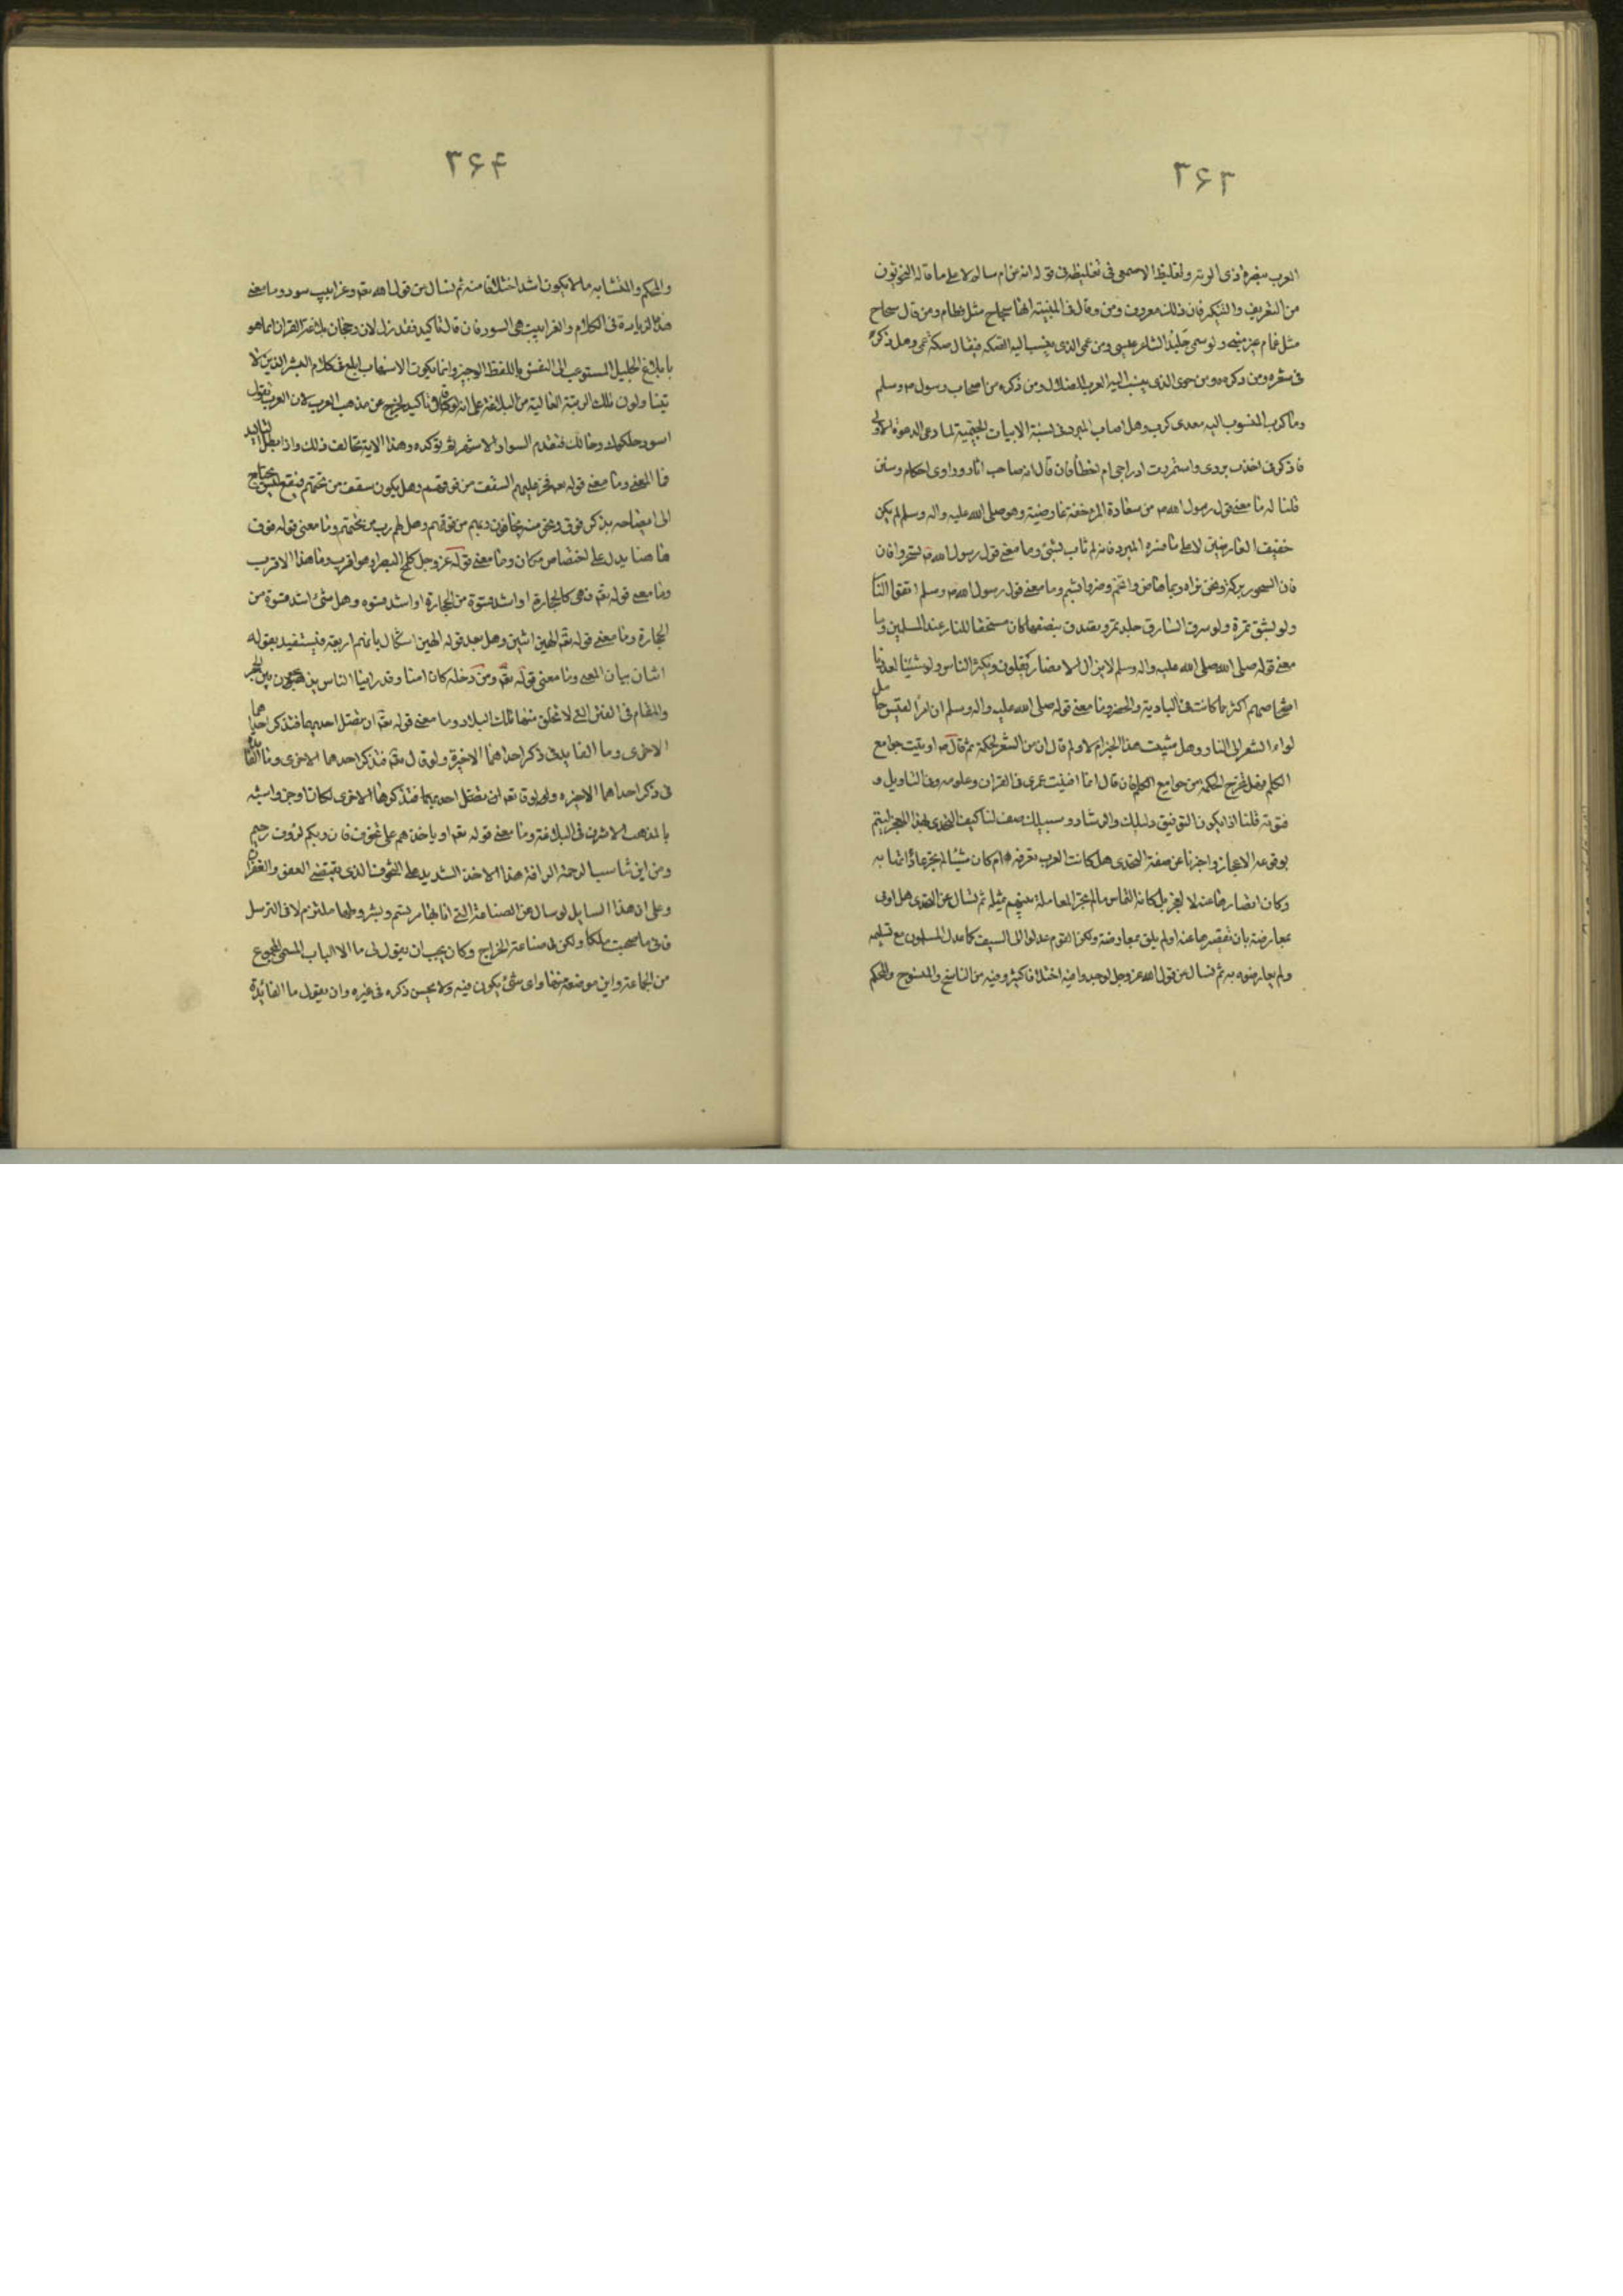 ٣۶٣
العرب بغيره ذى الرمة وتغليظ الاصمعى فى تغليظه فى قوله انه من ام سالم لا على ما قاله النحويون
من التعريف والتنكير فان ذلك معروف ومن وقال فى المنبية انها سجاح مثل قطام ومن قال سجاح
مثل غمام غير منبه ولو سمى جليد الشاعر عيسى ومن عمى الذى ينسب اليه الصكه فيقال صكة عمى وهل ذكره
فى شعره ومن ذكره ومن حوى الذى ينسب اليه العرب الضلال ومن ذكره من اصحاب رسول ص وسلم
وما كرب المنسوب اليه معدى كرب وهل اصاب المبرد فى نسبة الابيات الجيمية لما دعى الدعوة الاولى
فاذكر فى اخذت بردى واستمررت ادراجى ام اخطأ فان قال انه صاحب اثار وراوى احكام وسنن
قلنا له ما معنى قول رسول الله ص من سعادة المرء خفة عارضيه وهو صلى الله عليه واله وسلم لم يكن
خفيف العارضين لا على ما فسره المبرد فانه لم يات بشئ وما معنى قول رسول الله ص تسحروا فان
فان السحور بركة ونحن نراه ربما هاض واتخم وضر وابشم وما معنى قول رسول الله ص وسلم اتقوا النار
ولو بشق تمرة ولو سرق السارق جلة تمر وتصدق بنصفها كان مستحقا للنار عند المسلمين وما
معنى قوله صلى الله صلى الله عليه واله وسلم لا يزال الانصار يقلون ويكثر الناس ولو شئنا لعددنا
اشخاصهم اكثر مما كانت فى البادية والحضر وما معنى قوله صلى الله عليه واله وسلم ان امرأ القيس حامل
لواء الشعر الى النار وهل يثبت هذا الخبر ام لا ولم قال ان من الشعر لحكمة ثم قال ص اوتيت جوامع
الكلم فهل تخرج الحكمة من جوامع الكلم فان قال انما افنيت عمرى فى القران وعلومه وفى التاويل و
فنونه قلنا اذا يكون التوفيق دليلك والرشاد سبيلك صف لنا كيف التحدى بهذا المعجز ليتم
بوقوعه الاعجاز واخبرنا عن صفة التحدى هل كانت العرب تعرفه ام كان شيئا لم تجر عاداتها به
وكان اقصارها عنه لا لعجز بل كانه التماس ما لم تجر المعاملة بينهم بمثله ثم نسال عن التحدى هل اوفى
بمعارضة بان تقصيرها عنه او لم يلق بمعارضة ولكن القوم عدلوا الى السيف كما عدل المسلمون مع تسليمه
ولم يعارضوه به ثم نسال عن قول الله عز وجل لوجدوا فيه اختلافا كثيرا وفيه من الناسخ والمنسوخ والمحكم
٣۶۴
والمحكم والمتشابه ما لا يكون اشد اختلافا منه ثم نسال عن قول الله تعه وغرابيب سود وما معنى
هذه الزيادة فى الكلام والغرابيب هى السود فان قال تاكيد فقد زل لان رجحان بلاغة القران انما هو
بابلاغ الجليل المستوعب الى النفس باللفظ الوجيز وانما يكون الاسهاب ابلغ فى كلام البشر الذين لا
يتناولون تلك الرتبة العالية من البلاغة على انه لو كان فى تاكيد لخرج عن مذهب العرب لان العرب تقول
اسود حلكوك وحالك فتقدم السواد الاشهر ثم تؤكده وهذا الاية تخالف ذلك واذا بطل التاكيد
فما المعنى وما معنى قوله تعه فخر عليهم السقف من فوقهم وهل يكون سقف من تحتهم فيقع لبس يحتاج
الى ايضاحه بذكر فوق ونحو منه يخافون ربهم من فوقهم وهل لهم رب من تحتهم وما معنى قوله فوق
هاهنا يدل على اختصاص مكان وما معنى قوله عز وجل كلمح البصر او هو اقرب وما هذا الاقرب
وما معنى قوله تعه فهى كالحجارة او اشد قسوة من الحجارة او اشد قسوه وهل شئ اشد قسوة من
الحجارة وما معنى قوله تعه الهين اثنين وهل بعد قوله الهين اشكال بانهم اربعة فيستفيد بقوله
اثنان بيان المعنى وما معنى قوله تعه ومن دخله كان امنا وقد راينا الناس يذبحون بين الحجر
والمقام فى الفتن التى لا تخلق منها تلك البلاد وما معنى قوله تعه ان تضل احديهما فتذكر احداهما
الاخرى وما الفايدة فى ذكر احداهما الاخيرة ولو قال تعه فتذكر احدهما الاخرى وما الفائدة
فى ذكر احداهما الاخيره ولو قال تعه ان تضل احديهما فتذكرها الاخرى لكان اوجز واشبه
بالمذهب الاشرف فى البلاغة وما معنى قوله تعه او ياخذهم على تخوف فان ربكم لرؤف رحيم
ومن اين تناسب الرحمة الرافة هذا الاخذ الشديد على التخوف الذى يقتضى العفو والغفران
وعلى ان هذا السايل لو سال عن الصناعة التى انا بها مرتسم وبشروطها ملتزم لا فى الترسل
فانى ما صحبت ملكا ولكن فى صناعة الخراج وكان يجب ان يقول لى ما الا الباب المسمى المجموع
من الجماعة واين موضعه منها واى شئ يكون فيه ولا يحسن ذكره فى غيره وان يقول ما الفائدة